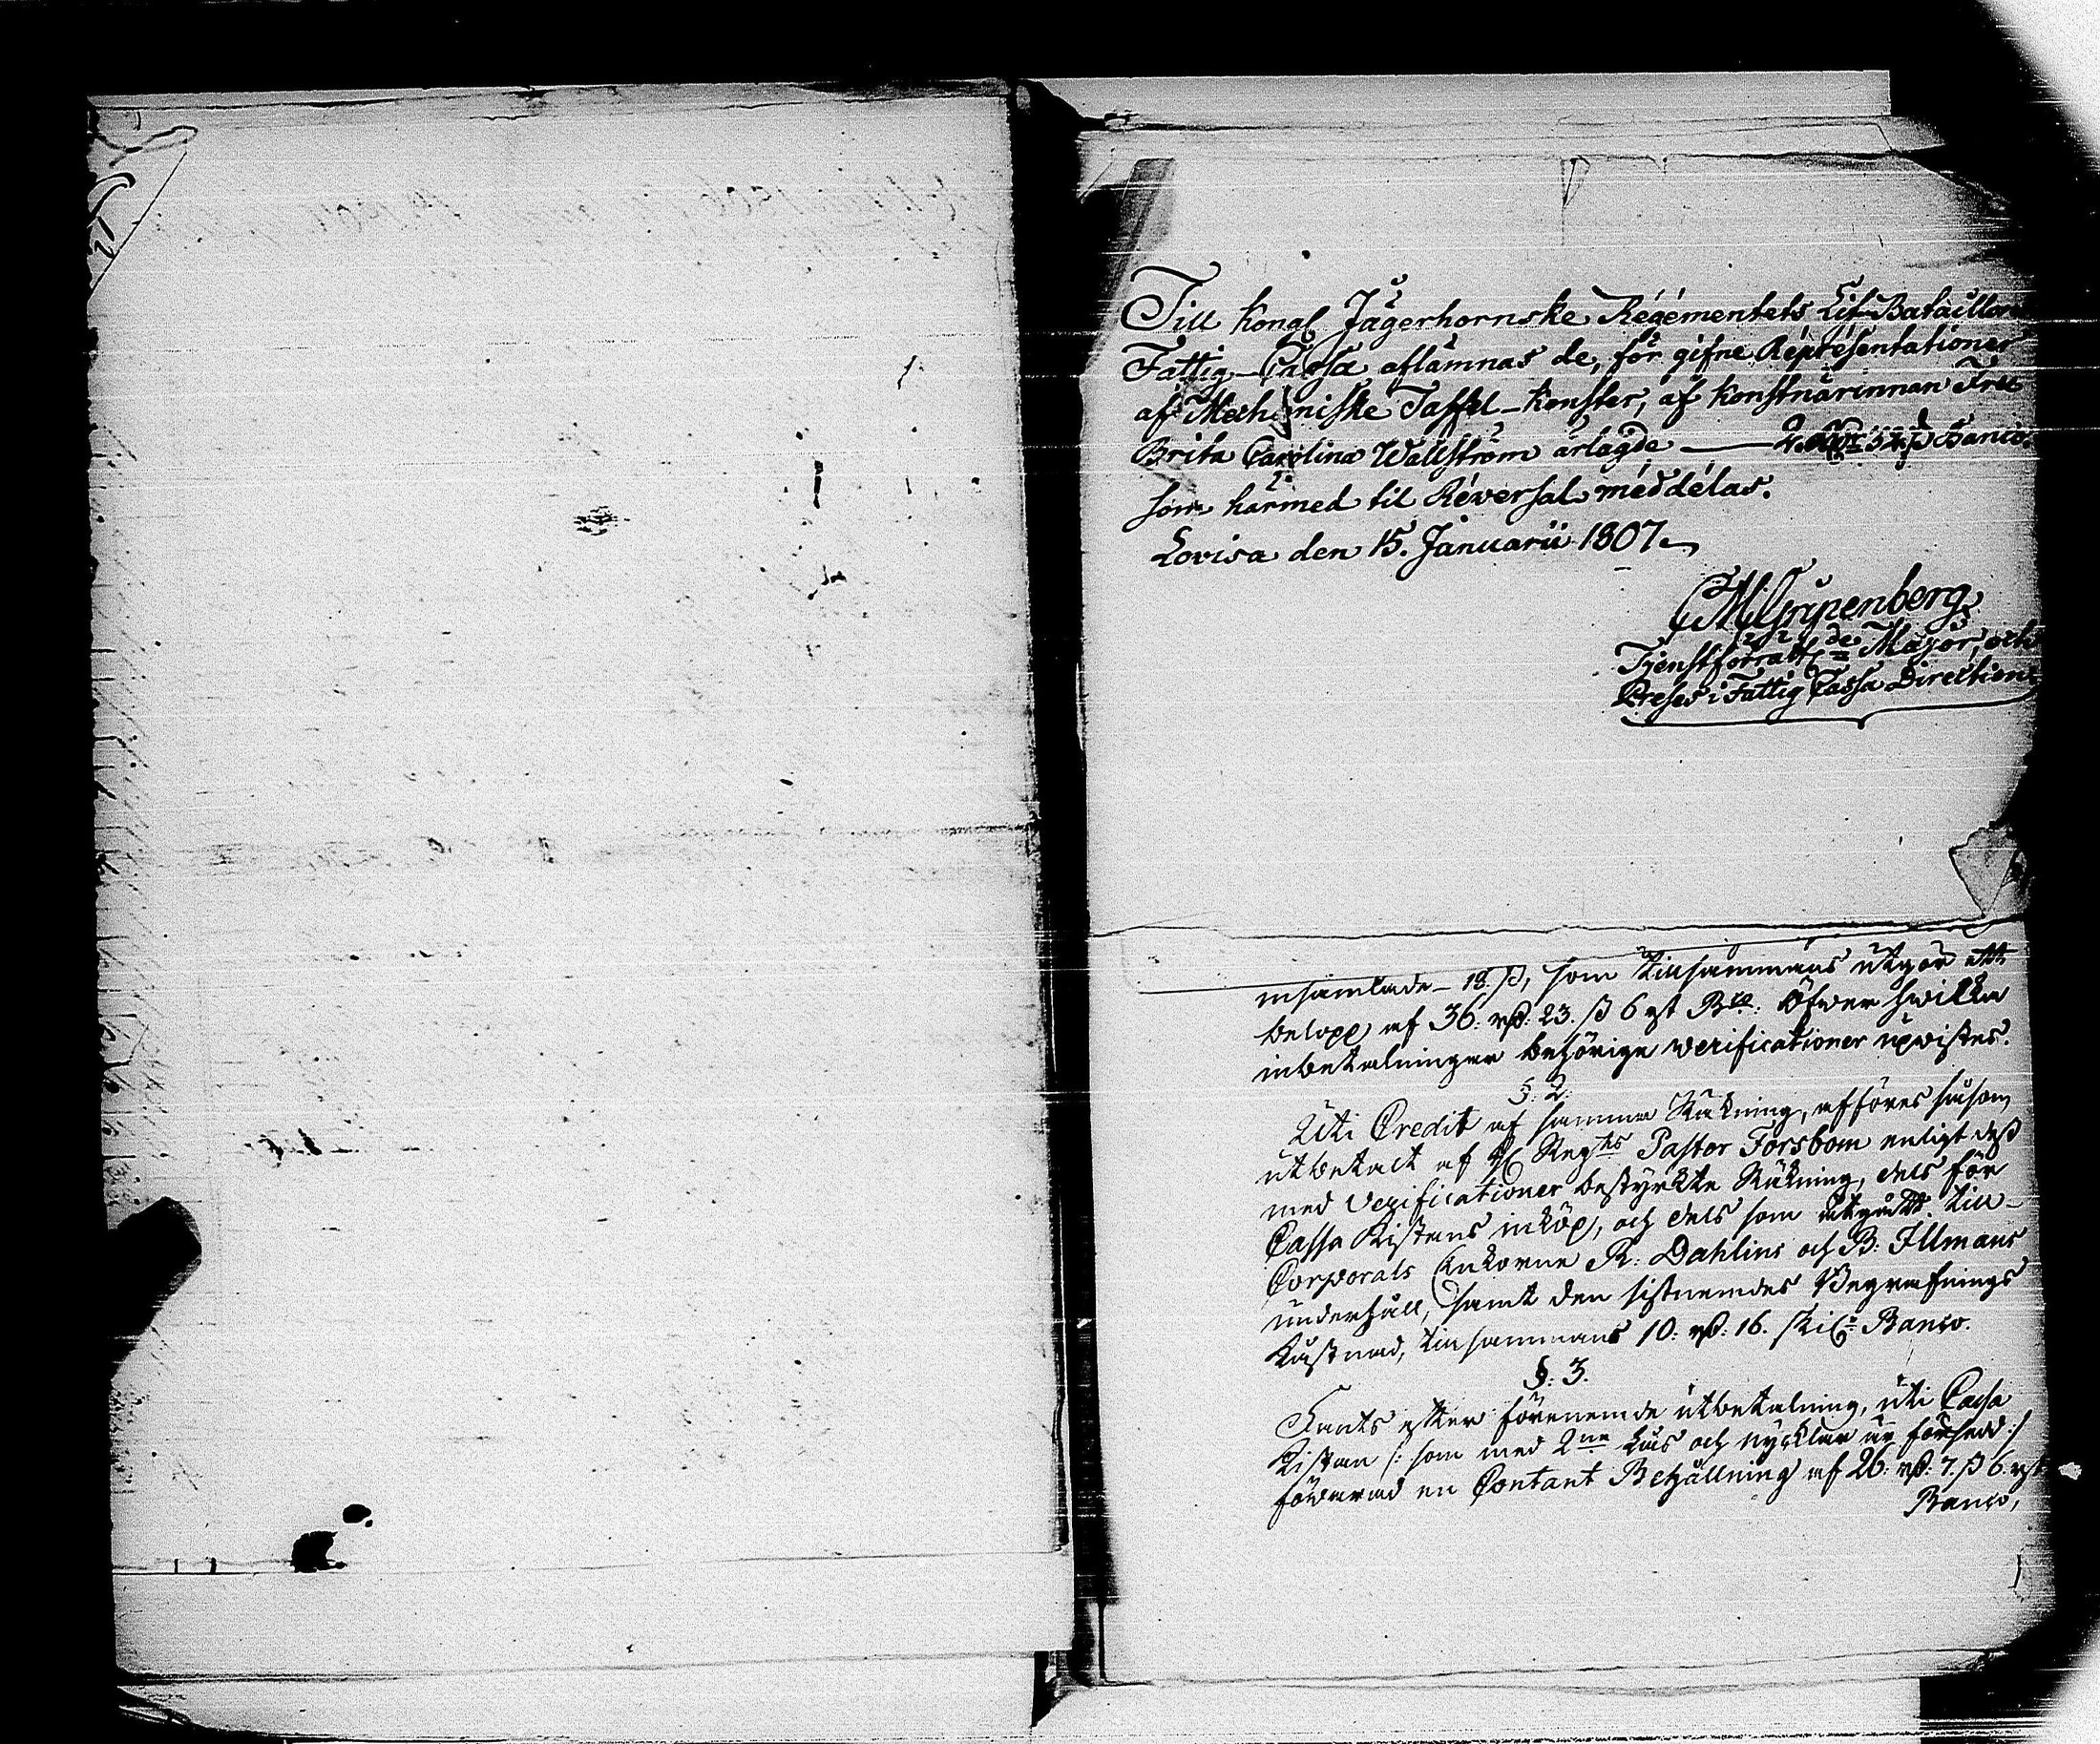 Till Kongl Jägerhornske Régémentets Lif Bataillons
Fattig-Cassa aflämnas de, för gifne Répresentationer
af Mechaniske Taffel-Konster, af Konstnärinnan Fru
Brita Carolina Wallström ärlagde — Banco.
som härmed til Réversal méddélas.
Lovisa den 15. Januarii 1807.
CMGripenberg
Tjenstförrätt:de Major, och
Preses i Fattig Cassa Direction
insamlade - 18. ß, som tillsammans utgör ett
belopp af 36: rd: 23. ß 6 rst B:co. Öfwer hwilka
inbetalningar behörige verificationer upwistes.
§. 2.
Uti Credit af samma Räkning, afföres såsom
utbetalt af Reg:ts Pastor Forsbom enligt deß
med Verificationer bestyrkte Räkning, dels för
Cassa Kistans inköp, och dels som utgådt till
Corporals Enkorne R: Dahlins och B: Illmans
underhåll, samt den sistnemdes Begrafnings
Kåstnad, tillsammans 10: rd: 16. skil: Banco.
§. 3.
Fants efter förenemde utbetalning, uti Cassa
Kistan /: som med 2:ne Lås och nycklar är försedd :/
förwarad en Contant Behållning af 26: rd: 7. ß 6. rst
Banco,